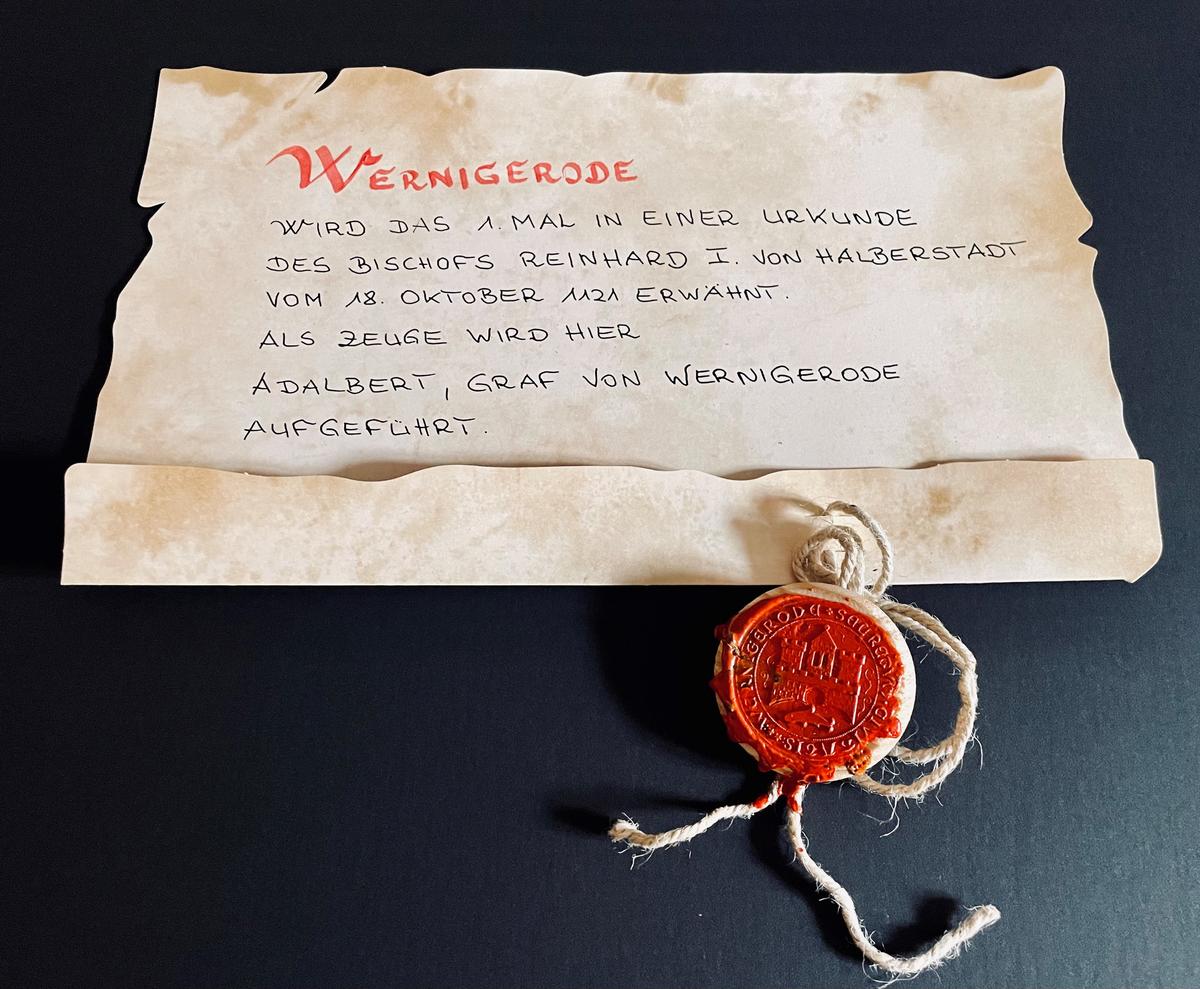 WERNIGERODE
WIRD DAS 1. MAL IN EINER URKUNDE
DES BISCHOFS REINHARD I. VON HALBERSTADT
VOM 18. OKTOBER 1121 ERWÄHNT.
ALS ZEUGE WIRD HIER
ADALBERT, GRAF VON WERNIGERODE
AUFGEFÜHRT.